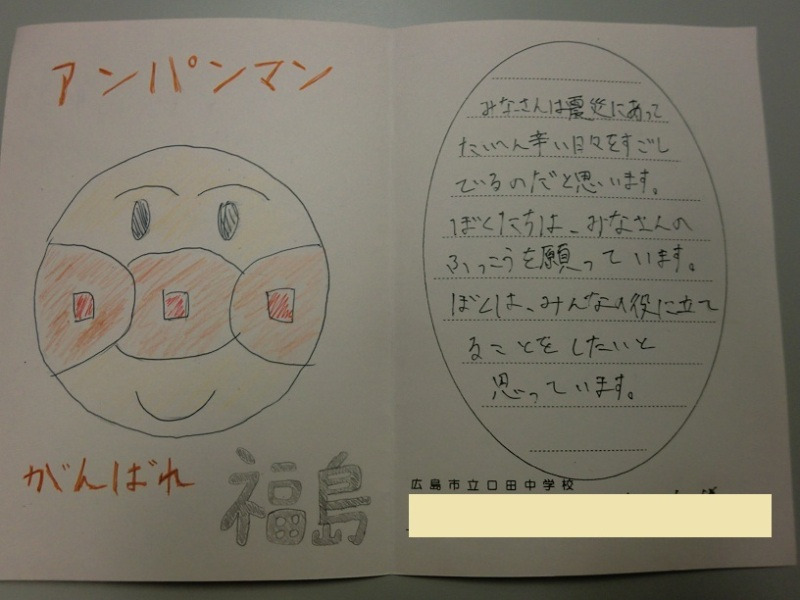 アンパンマン
がんばれ 福島
みなさんは震災にあって
たいへん辛い日々をすごし
ているのだと思います。
ぼくたちは、みなさんの
ふっこうを願っています。
ぼくは、みんなの役に立て
ることをしたいと
思っています。
広島市立口田中学校